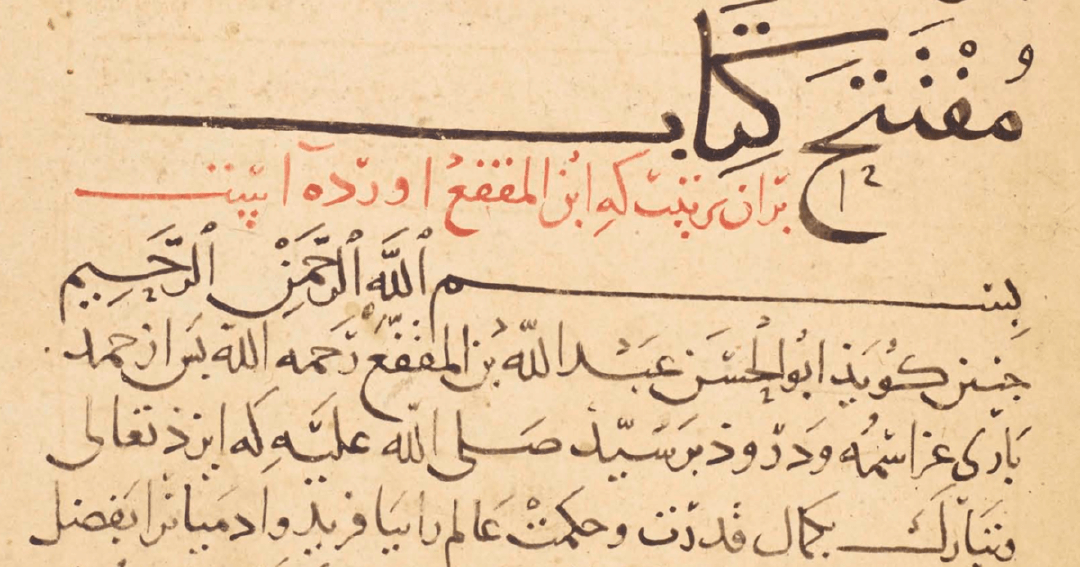 مُفْتَتَحِ كِتَابْ
بر ان ترتیب که ابن المقفع اورده است
بِسم ٱللَّهِ ٱلرَّحْمَنِ ٱلرَّحِيمِ
جنین کویذ ابو الحسن عبد الله بن المقفع رحمه الله پس از حمد
باری عز اسمه و درود بر سید صلی الله علیه که ایزد تعالی
و تبارک بکمال قدرت و حکمت عالم را بیافرید و ادمیانرا بفضل